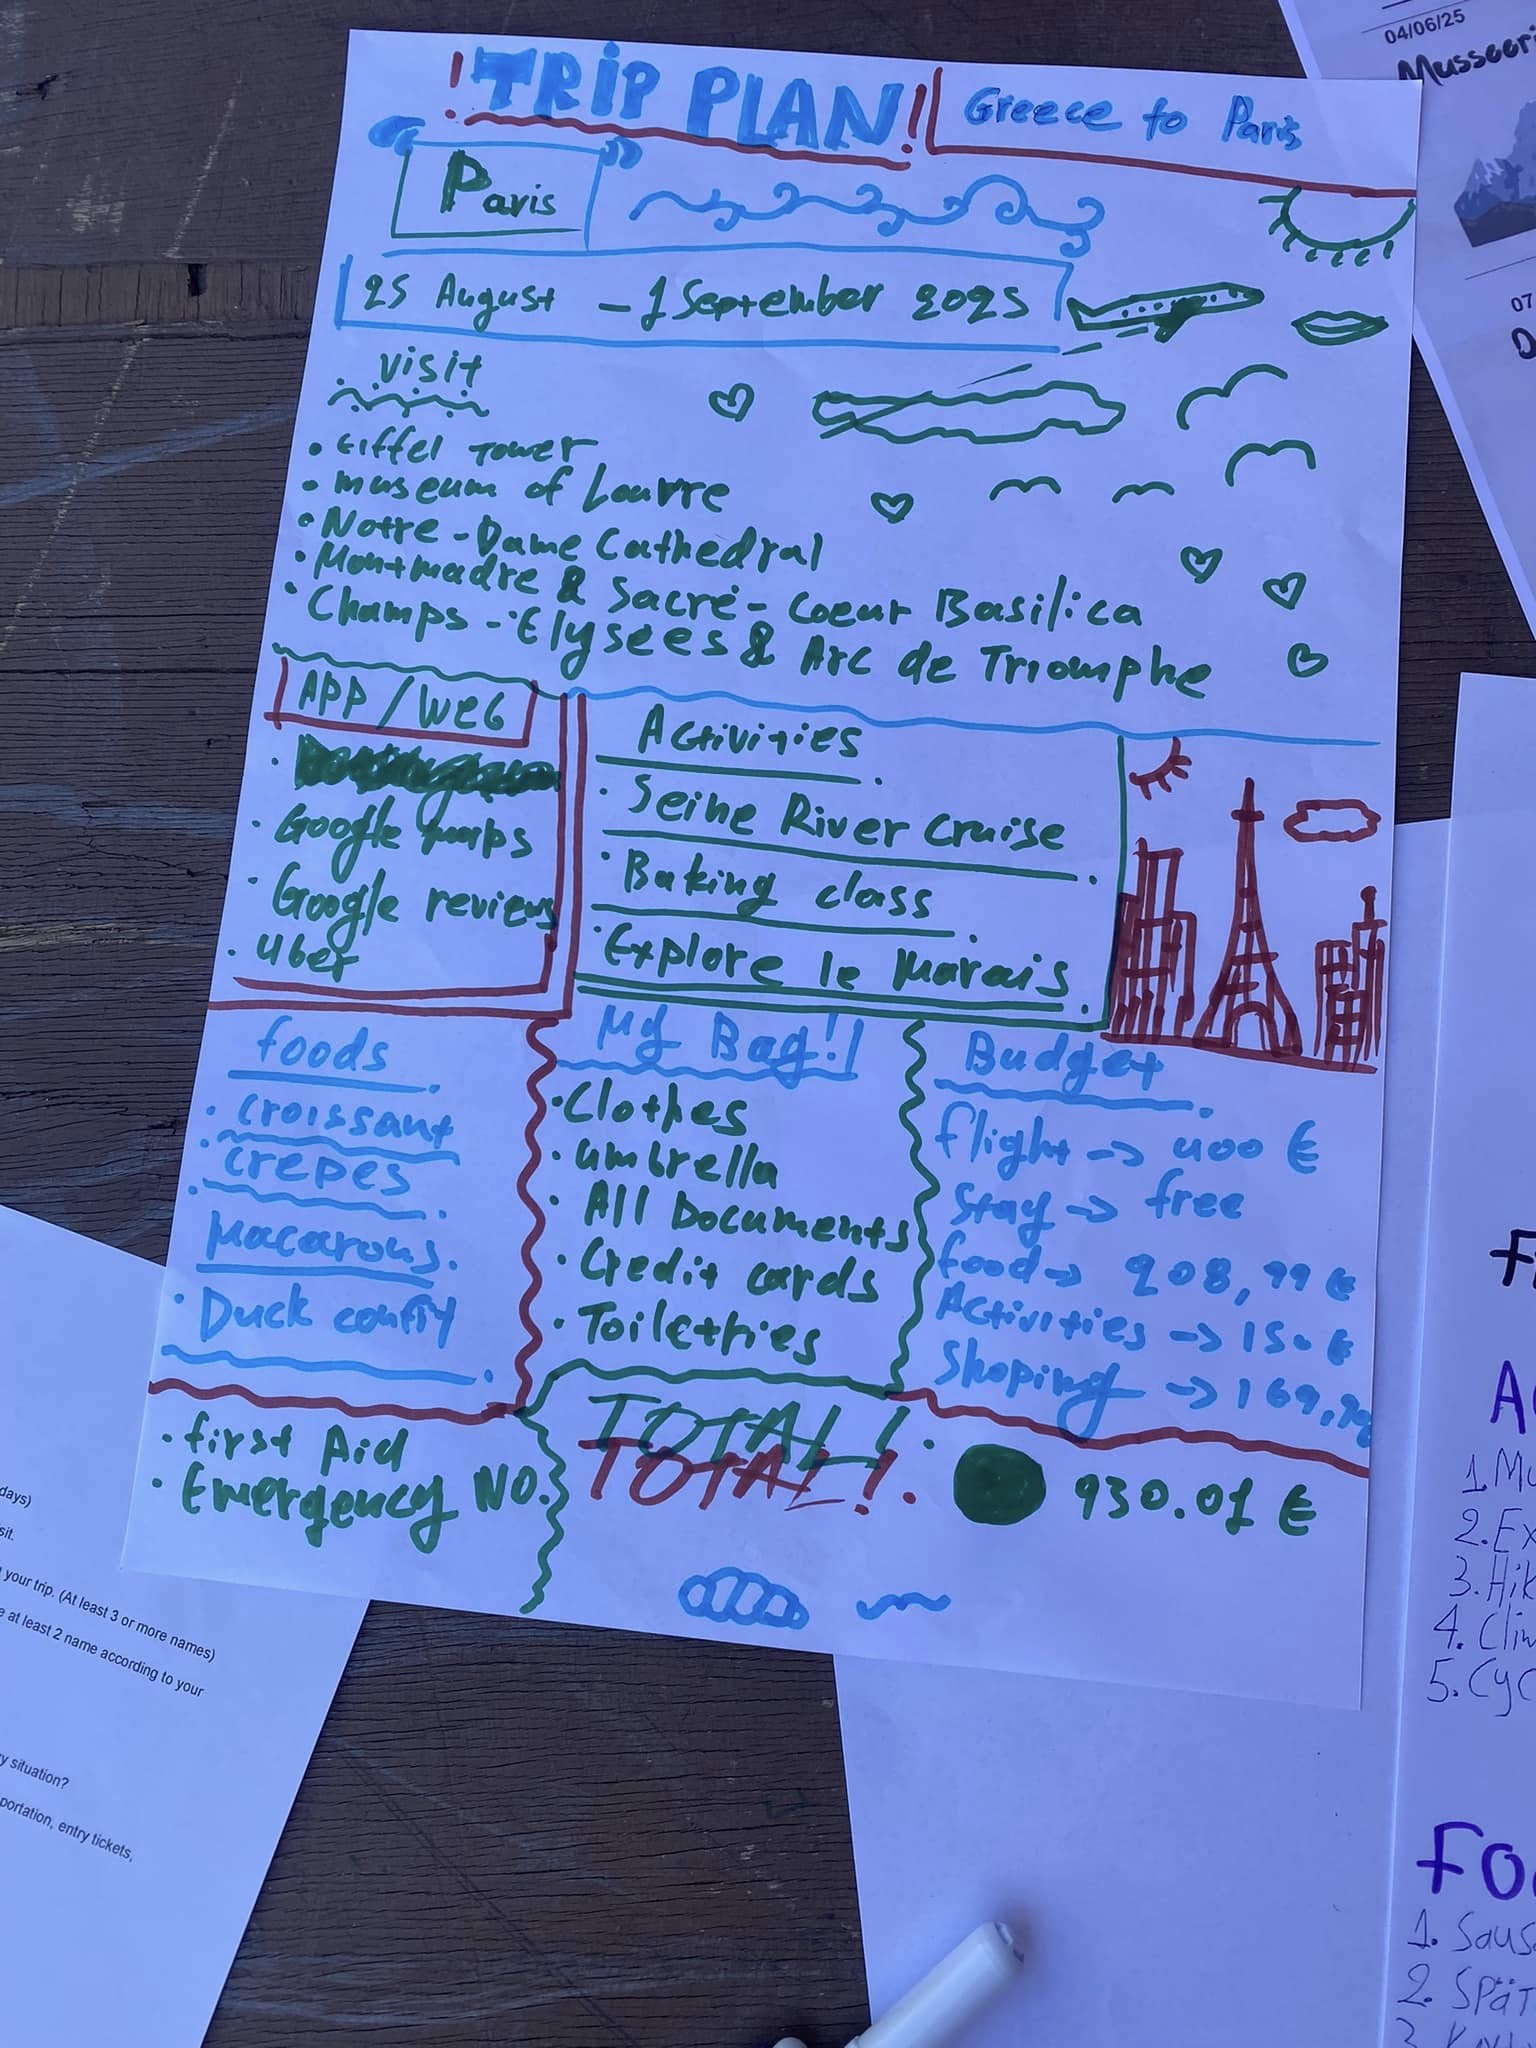 !TRIP PLAN!
Greece to Paris
Paris
25 August - 1 September 2025
visit
• Eiffel Tower
• museum of Louvre
• Notre-Dame Cathedral
• Montmadre & Sacré-Coeur Basilica
• Champs-Elysees & Arc de Triomphe
APP/Web
• Google maps
• Google reviews
• Uber
Activities
• Seine River cruise
• Baking class
• Explore le Marais
foods
• croissant
• crepes
• Macarons
• Duck confiy
My Bag!
• Clothes
• umbrella
• All Documents
• Credit cards
• Toiletries
Budget
flight → 400 €
Stay → free
food → 208,99 €
Activities → 150 €
Shoping → 169,
• first Aid
• Emergency NO.
TOTAL!
TOTAL!
930.01 €
04/06/25
Musseori
07
days)
sit.
your trip. (At least 3 or more names)
e at least 2 name according to your
y situation?
portation, entry tickets,
F
A
1. Mu
2. Ex
3. Hik
4. Clim
5. Cyc
Fo
1. Saus
2. Spät
3.